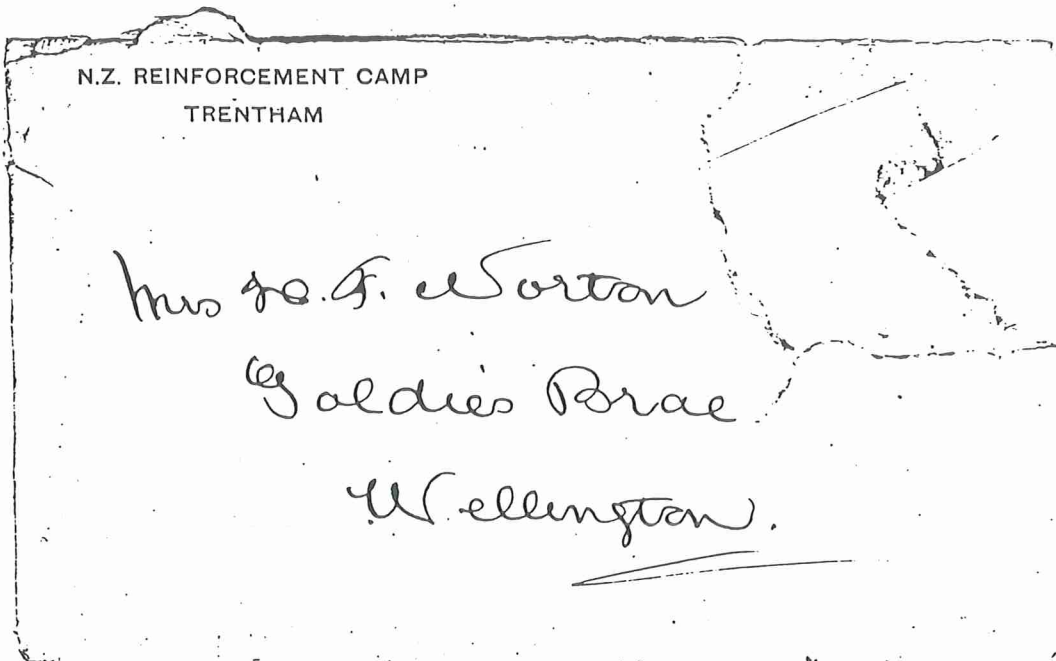 N.Z. REINFORCEMENT CAMP
TRENTHAM
Mrs H. F. Norton
Goldies Brae
Wellington.